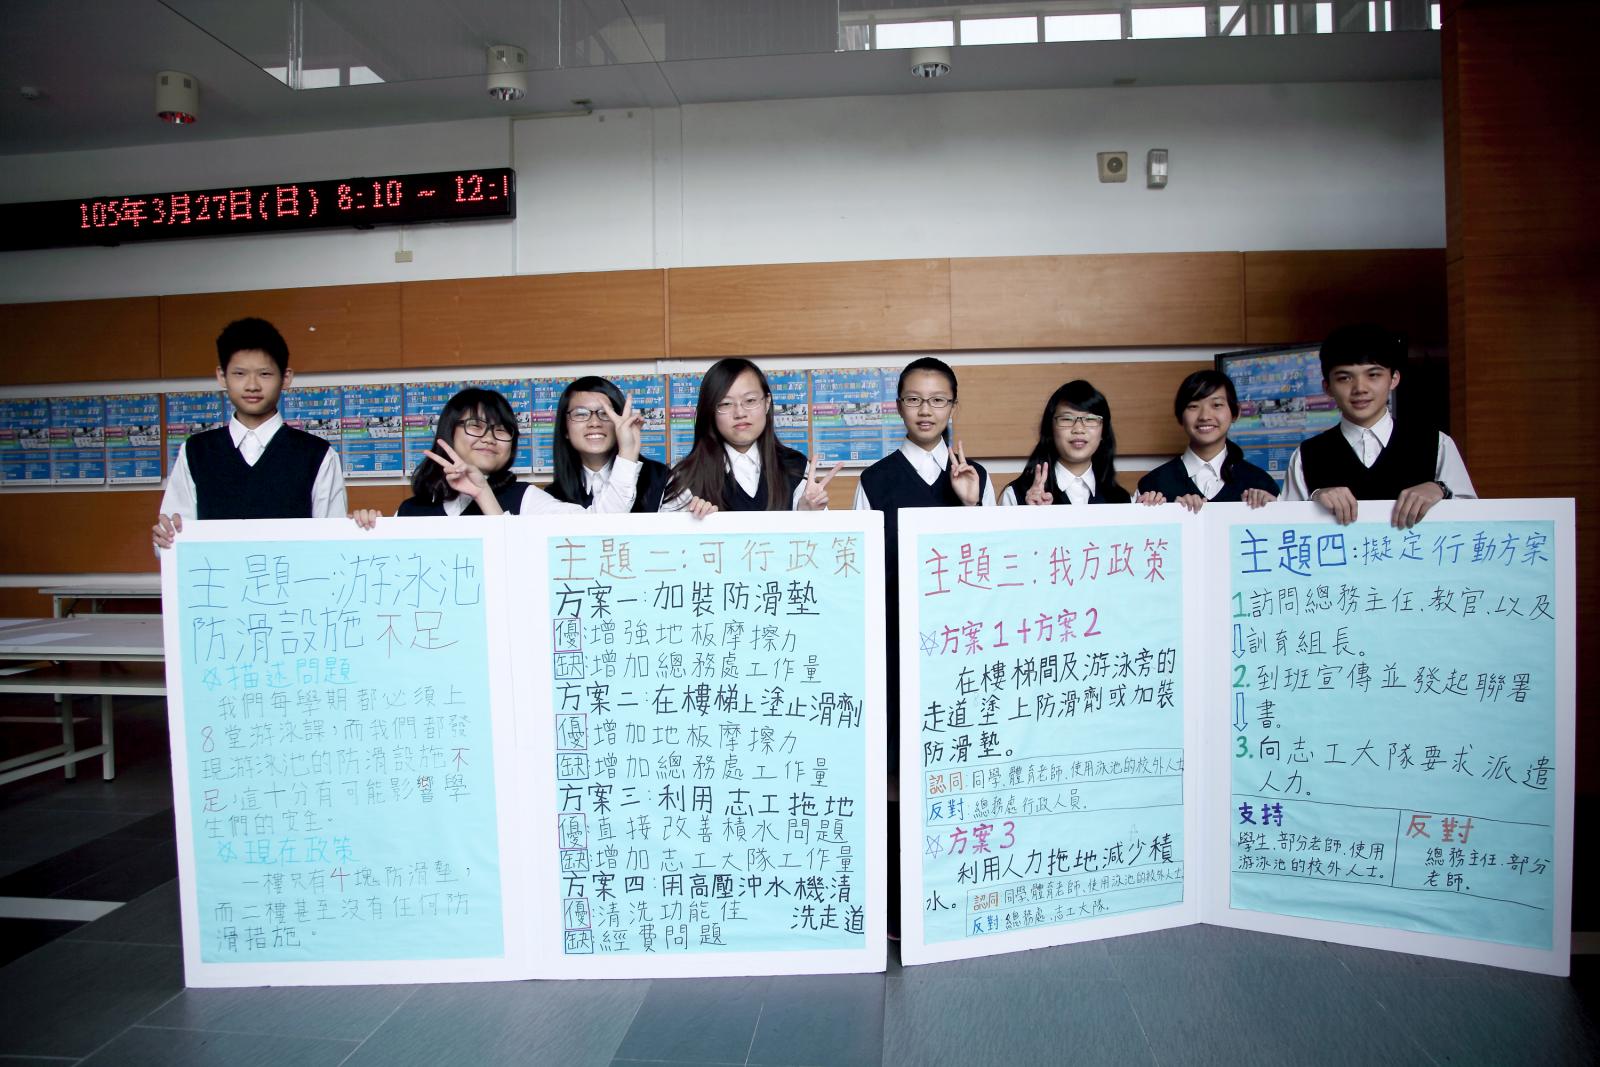 105年3月27日(日) 8:10 ~ 12:1
主題一:游泳池
防滑設施不足
描述問題
我們每學期都必須上
8堂游泳課,而我們都發
現游泳池的防滑設施不
足,這十分有可能影響學
生們的安全。
現在政策
一樓只有4塊防滑墊,
而二樓甚至沒有任何防
滑措施。
主題二:可行政策
方案一:加裝防滑墊
優:增強地板摩擦力
缺:增加總務處工作量
方案二:在樓梯上塗止滑劑
優:增加地板摩擦力
缺:增加總務處工作量
方案三:利用志工拖地
優:直接改善積水問題
缺:增加志工大隊工作量
方案四:用高壓沖水機清
洗走道
優:清洗功能佳
缺:經費問題
主題三:我方政策
☆方案1+方案2
在樓梯間及游泳旁的
走道塗上防滑劑或加裝
防滑墊。
認同:同學.體育老師、使用泳池的校外人士
反對:總務處行政人員。
☆方案3
利用人力拖地減少積
水。
認同:同學、體育老師、使用泳池的校外人士
反對:總務處、志工大隊。
主題四:擬定行動方案
1.訪問總務主任.教官.以及
訓育組長。
2.到班宣傳並發起聯署
書。
3.向志工大隊要求派遣
人力。
支持
學生、部分老師、使用
游泳池的校外人士。
反對
總務主任.部分
老師。